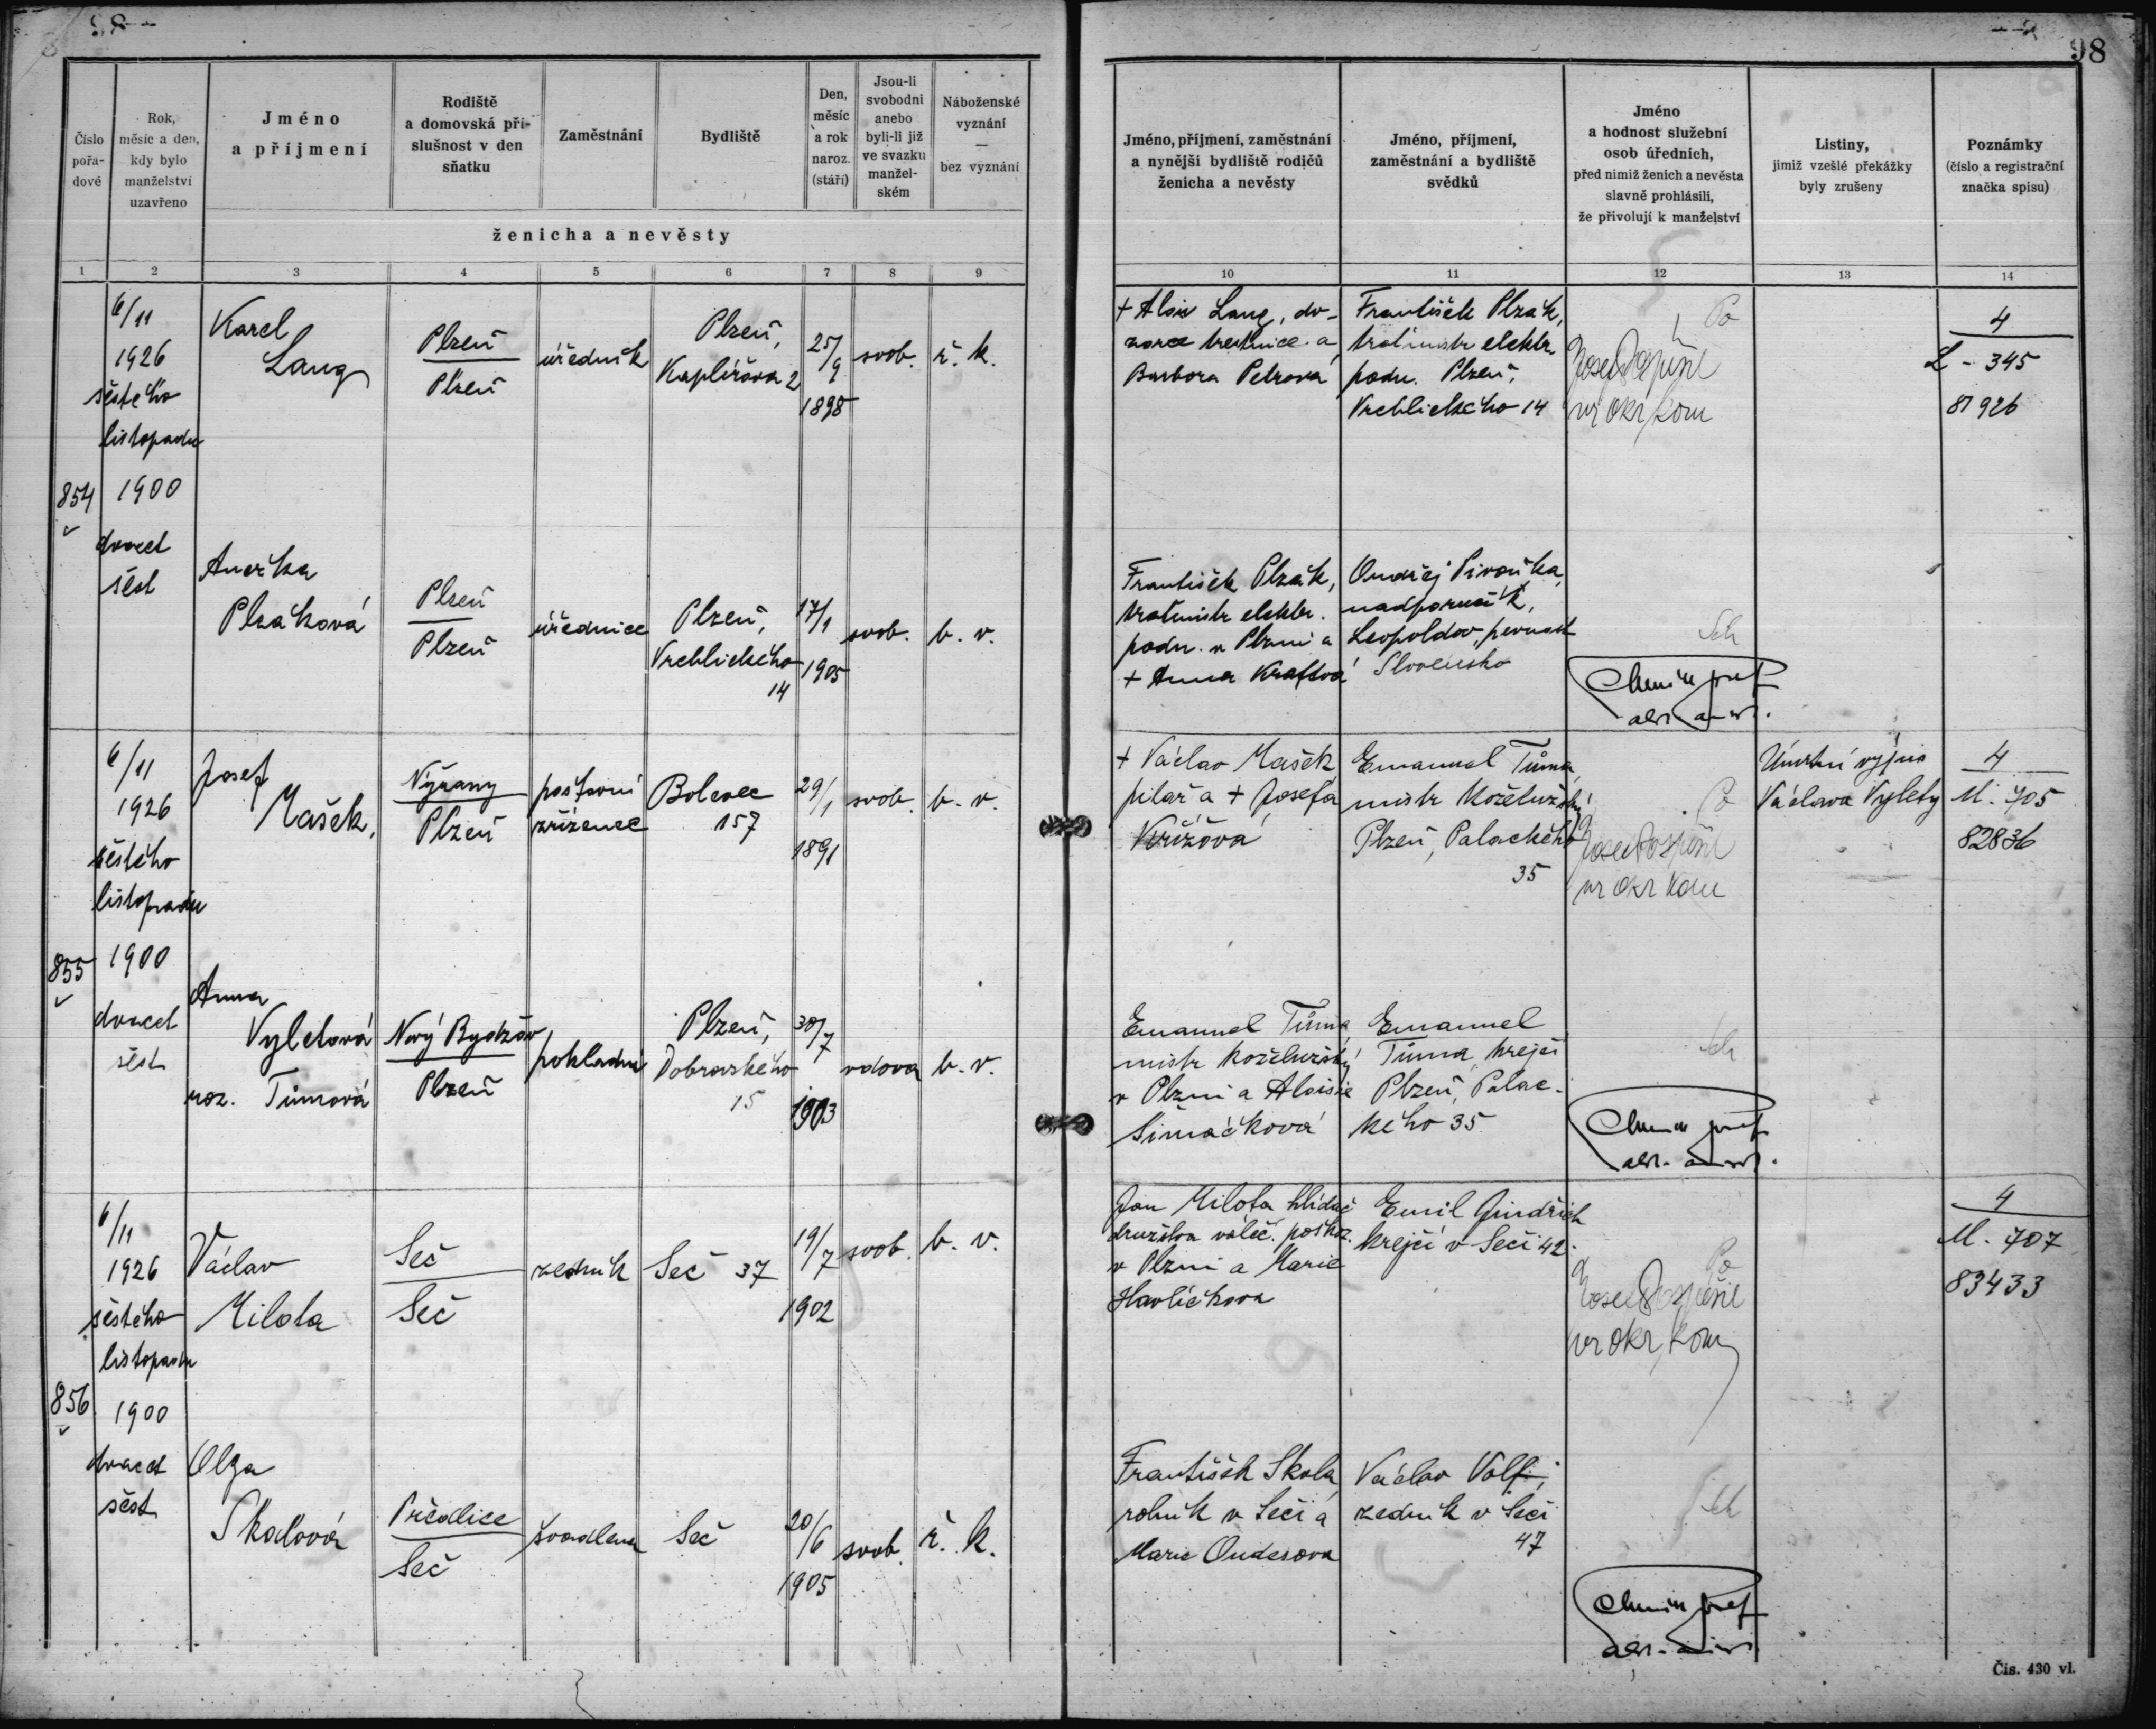 98
Číslo pořadové
Rok, měsíc a den, kdy bylo manželství uzavřeno
Jméno a příjmení
Rodiště a domovská příslušnost v den sňatku
Zaměstnání
Bydliště
Den, měsíc a rok naroz. (stáří)
Jsou-li svobodni anebo byli-li již ve svazku manželském
Náboženské vyznání — bez vyznání
ženicha a nevěsty
Jméno, příjmení, zaměstnání a nynější bydliště rodičů ženicha a nevěsty
Jméno, příjmení, zaměstnání a bydliště svědků
Jméno a hodnost služební osob úředních, před nimiž ženich a nevěsta slavně prohlásili, že přivolují k manželství
Listiny, jimiž vzešlé překážky byly zrušeny
Poznámky (číslo a registrační značka spisu)
1 2 3 4 5 6 7 8 9 10 11 12 13 14
854
6/11
1926
šestého
listopadu
1900
dvacet
šest
Karel
Lang
Plzeň
Plzeň
úředník
Plzeň,
Kaplířova 2
25/9
1898
svob.
ř. k.
+ Alois Lang, do-
zorce trestnice a
Barbora Petrová
František Plzák,
mistr elektr.
podn. Plzeň,
Vrchlického 14
Josef Pospíšil
vr okr kom
4
L - 345
81926
Anežka
Plzáková
Plzeň
Plzeň
úřednice
Plzeň,
Vrchlického
14
17/1
1905
svob.
b. v.
František Plzák,
mistr elektr.
podn. v Plzni a
+ Anna Kraftová
Ondřej Pivoňka,
nadporučík,
Leopoldov, pevnost
Slovensko
Sch
855
6/11
1926
šestého
listopadu
1900
dvacet
šest
Josef
Mašek,
Nýřany
Plzeň
poštovní
zřízenec
Bolevec
157
29/1
1891
svob.
b. v.
+ Václav Mašek
pilař a + Josefa
Křížová
Emanuel Tůma,
mistr koželužský
Plzeň, Palackého
35
Josef Pospíšil
vr okr kom
Václava Vylety
4
M. 705
82836
Anna
Vyletová
roz. Tůmová
Nový Bydžov
Plzeň
pokladní
Plzeň,
Dobrovského
15
30/7
1903
vdova
b. v.
Emanuel Tůma,
mistr koželužský
v Plzni a Aloisie
Šimáčková
Emanuel
Tůma, krejčí
Plzeň, Palac-
kého 35
Sch
856
6/11
1926
šestého
listopadu
1900
dvacet
šest
Václav
Milota
Seč
Seč
zedník
Seč 37
19/7
1902
svob.
b. v.
Jan Milota hlídač
družstva váleč. poškoz.
v Plzni a Marie
Havlíčkova
Emil Jindřich
krejčí v Seči 42.
Josef Pospíšil
vr okr kom
4
M. 707
83433
Olga
Skalová
Předlice
Seč
švadlena
Seč
20/6
1905
svob.
ř. k.
František Skala,
rolník v Seči a
Marie Ouderova
Václav Volf,
zedník v Seči
47
Sch
Čís. 430 vl.